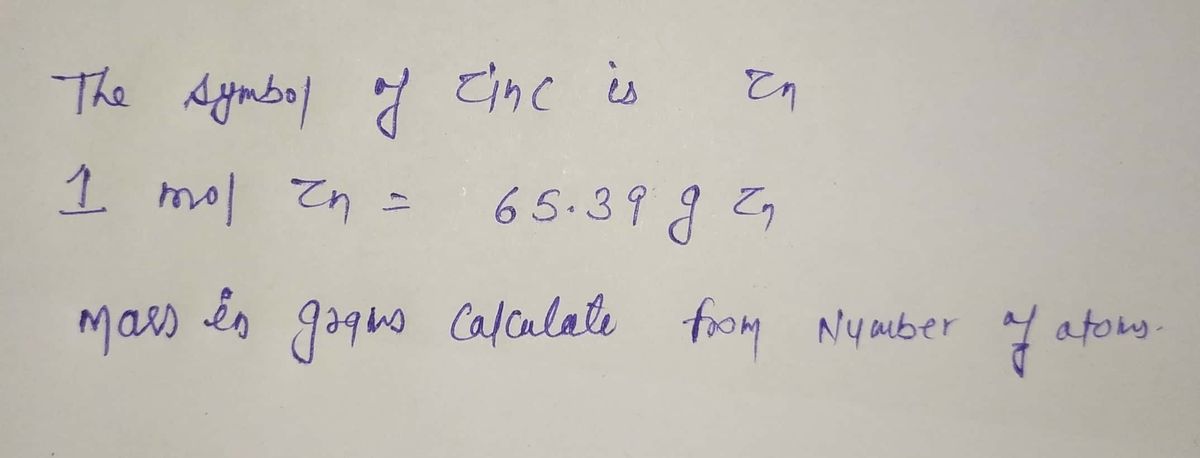 The symbol of zinc is Zn
1 mol Zn = 65.39 g Zn
Mass in grams calculate from Number of atoms.